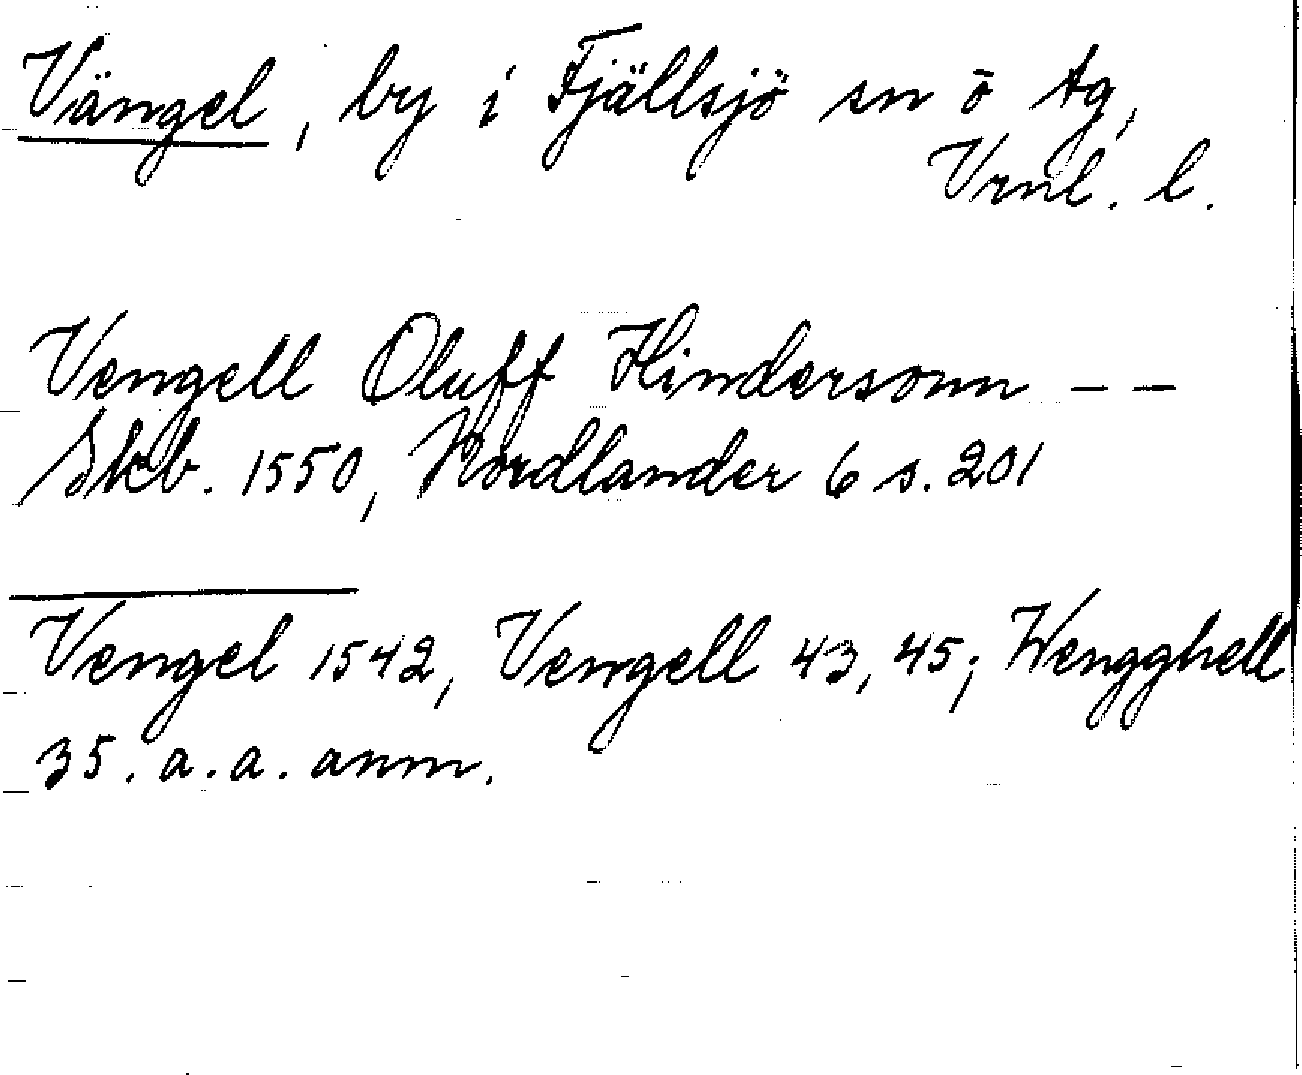 Vängel, by i Fjällsjö sn ö Ag,
Vrnl. l.
Vengell Oluff Hindersonn – –
Skb. 1550, Nordlander 6 s. 201
Vengel 1542, Vengell 43, 45; Wengghell
35. a. a. anm.